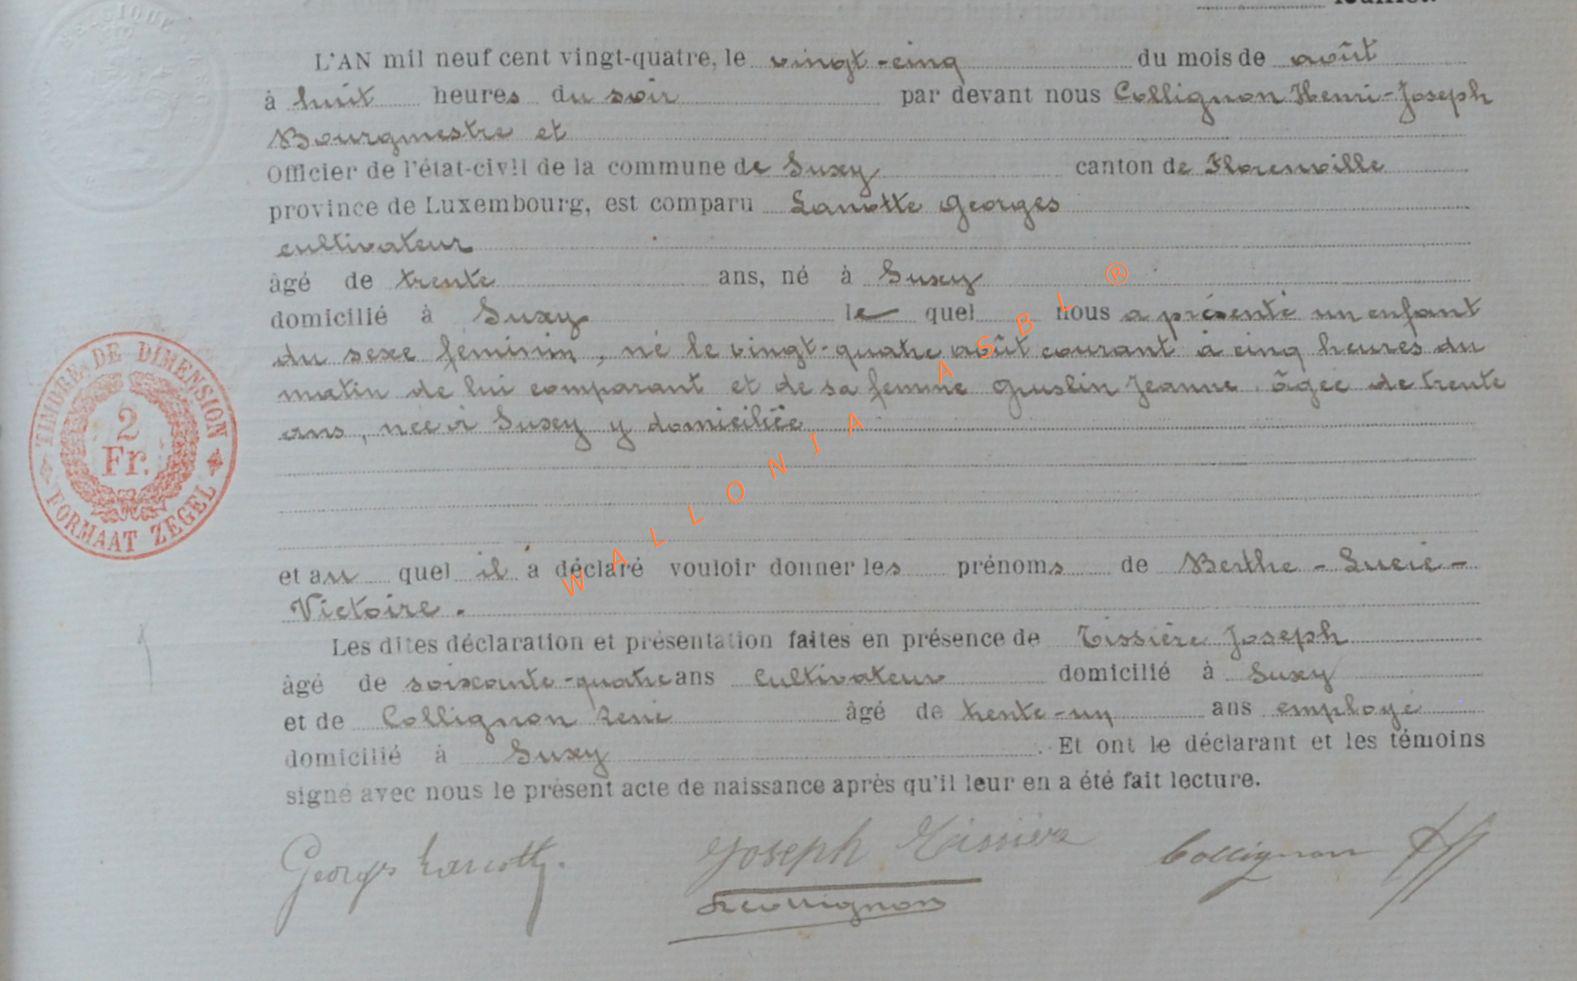 BELGIQUE
feuillet.
L'AN mil neuf cent vingt-quatre, le vingt-cinq du mois de août
à huit heures du soir par devant nous Collignon Henri-Joseph
Bourgmestre et
Officier de l'état-civil de la commune de Suxy canton de Florenville
province de Luxembourg, est comparu Lanotte Georges
cultivateur
âgé de trente ans, né à Suxy
domicilié à Suxy le quel nous a présenté un enfant
du sexe féminin, né le vingt-quatre août courant à cinq heures du
matin de lui comparant et de sa femme Guslin Jeanne âgée de trente
ans, née à Suxy y domiciliée
et au quel il a déclaré vouloir donner les prénoms de Berthe-Lucie-
Victoire.
Les dites déclaration et présentation faites en présence de Tissière Joseph
âgé de soixante-quatre ans cultivateur domicilié à Suxy
et de Collignon René âgé de trente-un ans employé
domicilié à Suxy. Et ont le déclarant et les témoins
signé avec nous le présent acte de naissance après qu'il leur en a été fait lecture.
Georges Lanotte. Joseph Tissière Collignon
RCollignon
TIMBRE DE DIMENSION
2
Fr.
FORMAAT ZEGEL
WALLONIA ASBL ®